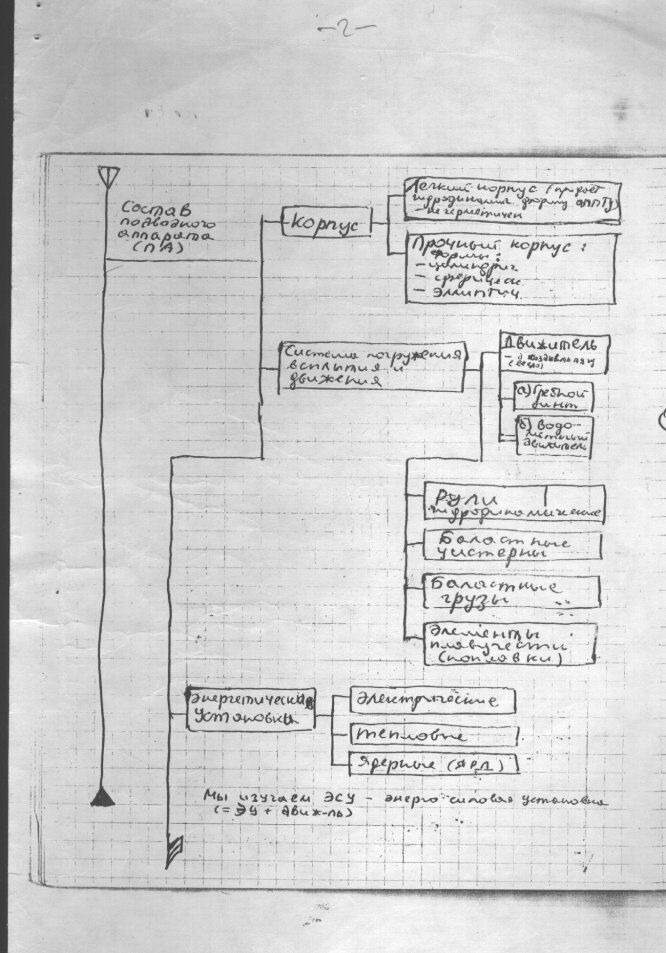 -2-
Состав
подводного
аппарата
(ПА)
Корпус
Легкий корпус (придает
гидродинамич. форму аппту)
- не герметичен
Прочный корпус:
формы:
- цилиндрич
- сферическ
- эллиптич.
Система погружения
всплытия и
движения
Движитель
а) Гребной
винт
б) Водо-
метный
движитель
Рули
гидродиномические
Баластные
цистерны
Баластные
грузы
Элементы
плавучести
(поплавки)
Энергетические
Установки
Электрические
тепловые
Ядерные (ЯРД)
Мы изучаем ЭСУ - энерго силовая установка
(= ЭУ + движ-ль)